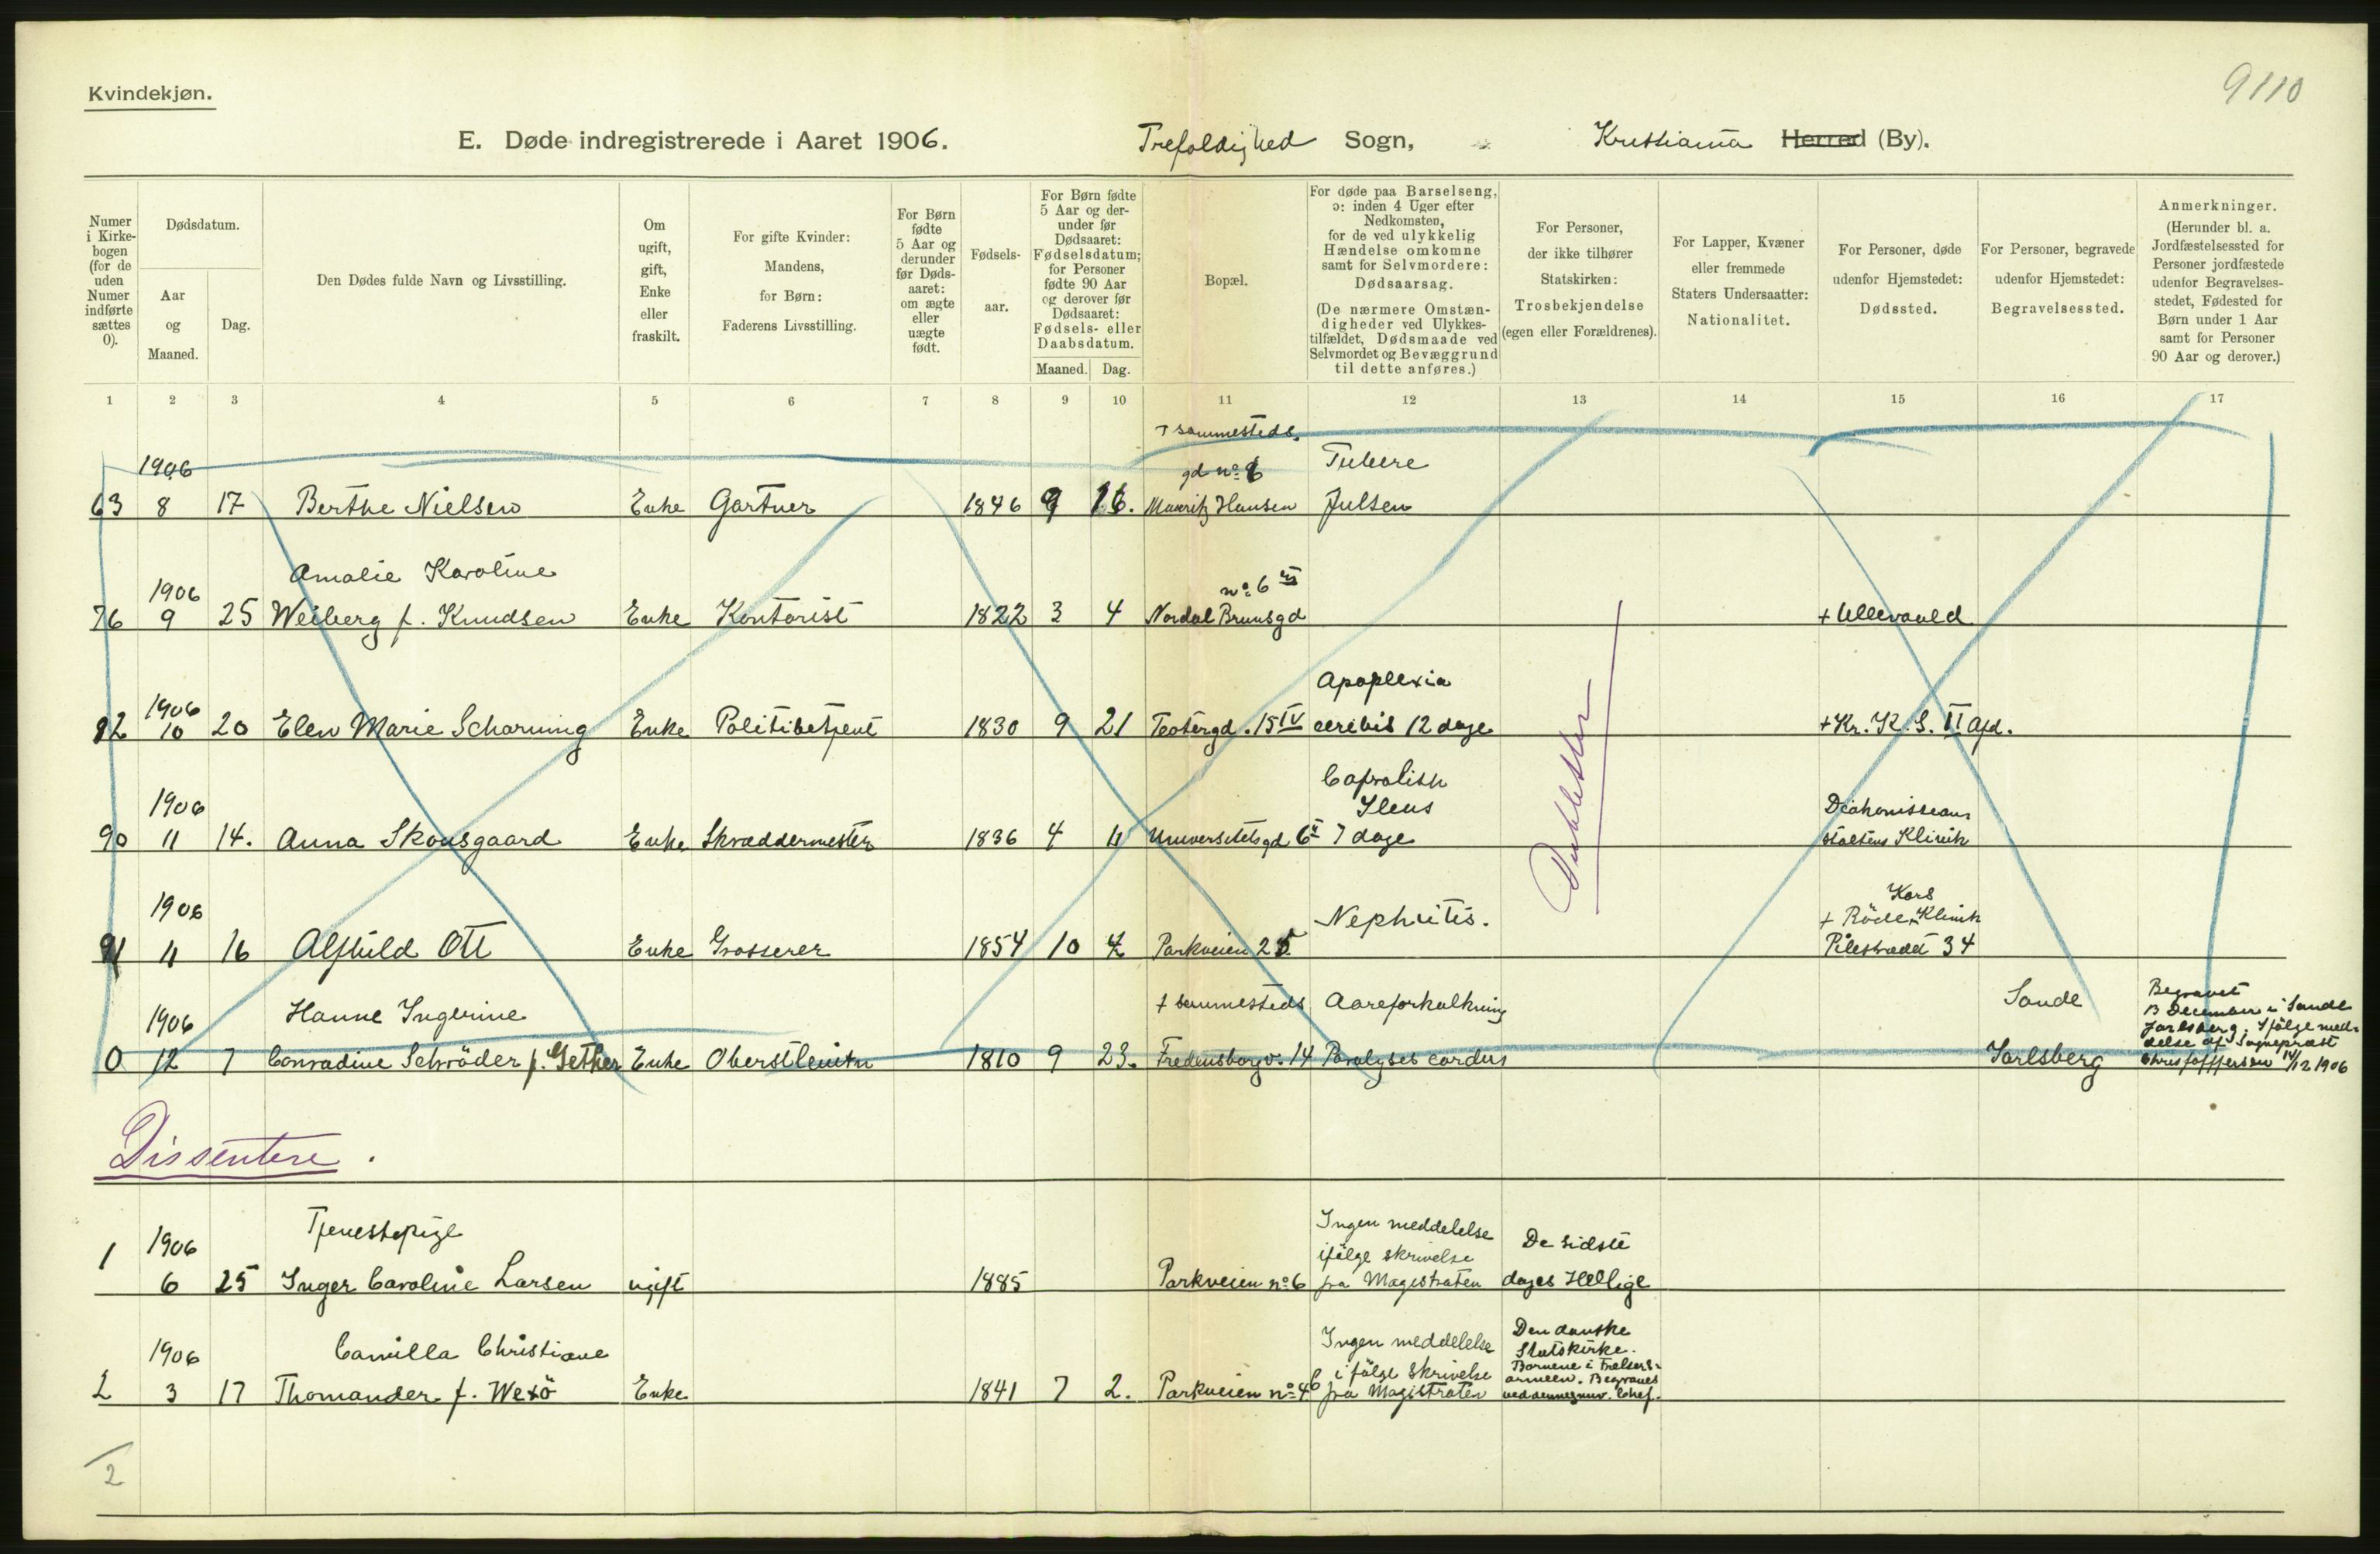 Kvindekjøn.
9110
E. Døde indregistrerede i Aaret 1906. Trefoldighed Sogn, Kristiania Herred (By).
Numer i Kirkebogen (for de uden Numer indførte sættes 0).
Dødsdatum.
Aar og Maaned.
Dag.
Den Dødes fulde Navn og Livsstilling.
Om ugift, gift, Enke eller fraskilt.
For gifte Kvinder: Mandens, for Børn: Faderens Livsstilling.
For Børn fødte 5 Aar og derunder før Dødsaaret: om ægte eller uægte født.
Fødselsaar.
For Børn fødte 5 Aar og derunder før Dødsaaret: Fødselsdatum; for Personer fødte 90 Aar og derover før Dødsaaret: Fødsels- eller Daabsdatum.
Maaned. Dag.
Bopæl.
For døde paa Barselseng, ɔ: inden 4 Uger efter Nedkomsten, for de ved ulykkelig Hændelse omkomne samt for Selvmordere: Dødsaarsag.
(De nærmere Omstændigheder ved Ulykkestilfældet, Dødsmaade ved Selvmordet og Bevæggrund til dette anføres.)
For Personer, der ikke tilhører Statskirken: Trosbekjendelse (egen eller Forældrenes).
For Lapper, Kvæner eller fremmede Staters Undersaatter: Nationalitet.
For Personer, døde udenfor Hjemstedet: Dødssted.
For Personer, begravede udenfor Hjemstedet: Begravelsessted.
Anmerkninger. (Herunder bl. a. Jordfæstelsessted for Personer jordfæstede udenfor Begravelsesstedet, Fødested for Børn under 1 Aar samt for Personer 90 Aar og derover.)
1 2 3 4 5 6 7 8 9 10 11 12 13 14 15 16 17
+ sammesteds.
1906 gd no 6
63 8 17 Berthe Nielsen Enke Gartner 1846 9 16. Mauritz Hansen
Amalie Karoline
1906 no 6
76 9 25 Weiberg f. Knudsen Enke Kontorist 1822 3 4 Nordal Brunsgd + Ullevaald
1906 Apoplexia
82 10 20 Elen Marie Scharning Enke Politibetjent 1830 9 21 15 IV cerebis 12 dage + Kr. K. S. II Afd.
Dubletter
1906 Ileus Diakonissean
90 11 14. Anna Skousgaard Enke Skræddermester 1836 4 11 Universitetsgd 6 7 dage staltens Klinik
Kors
1906 Nephritis. + Röde Klinik
91 11 16 Alfhild Ott Enke Grosserer 1854 10 Parkveien 25 Pilestrædet 34
Hanne Ingerine + sammesteds Aareforkalkning Sande Begravet
1906 13 December i Sande
Jarlsberg. Ifölge med-
delse af Sognepræst
0 12 7 Conradine Schröder f. Gether Enke Oberstleutn 1810 9 23. Fredensborgv. 14 Paralyses cordus Jarlsberg Christoffersen 14/12 1906
Dissentere.
Tjenestepige
1 1906 Ingen meddelelse De sidste
ifölge skrivelse
6 25 Inger Caroline Larsen ugift 1885 Parkveien no 6 fra Magistraten dages Hellige
Camilla Christiane Den danske
1906 Ingen meddelelse Statskirke.
i fölge Skrivelse Barnene i Frelsers-
armeen. Begraves
2 3 17 Thomander f. Wexö Enke 1841 7 2. Parkveien no 46 fra Magistraten Chef.
2